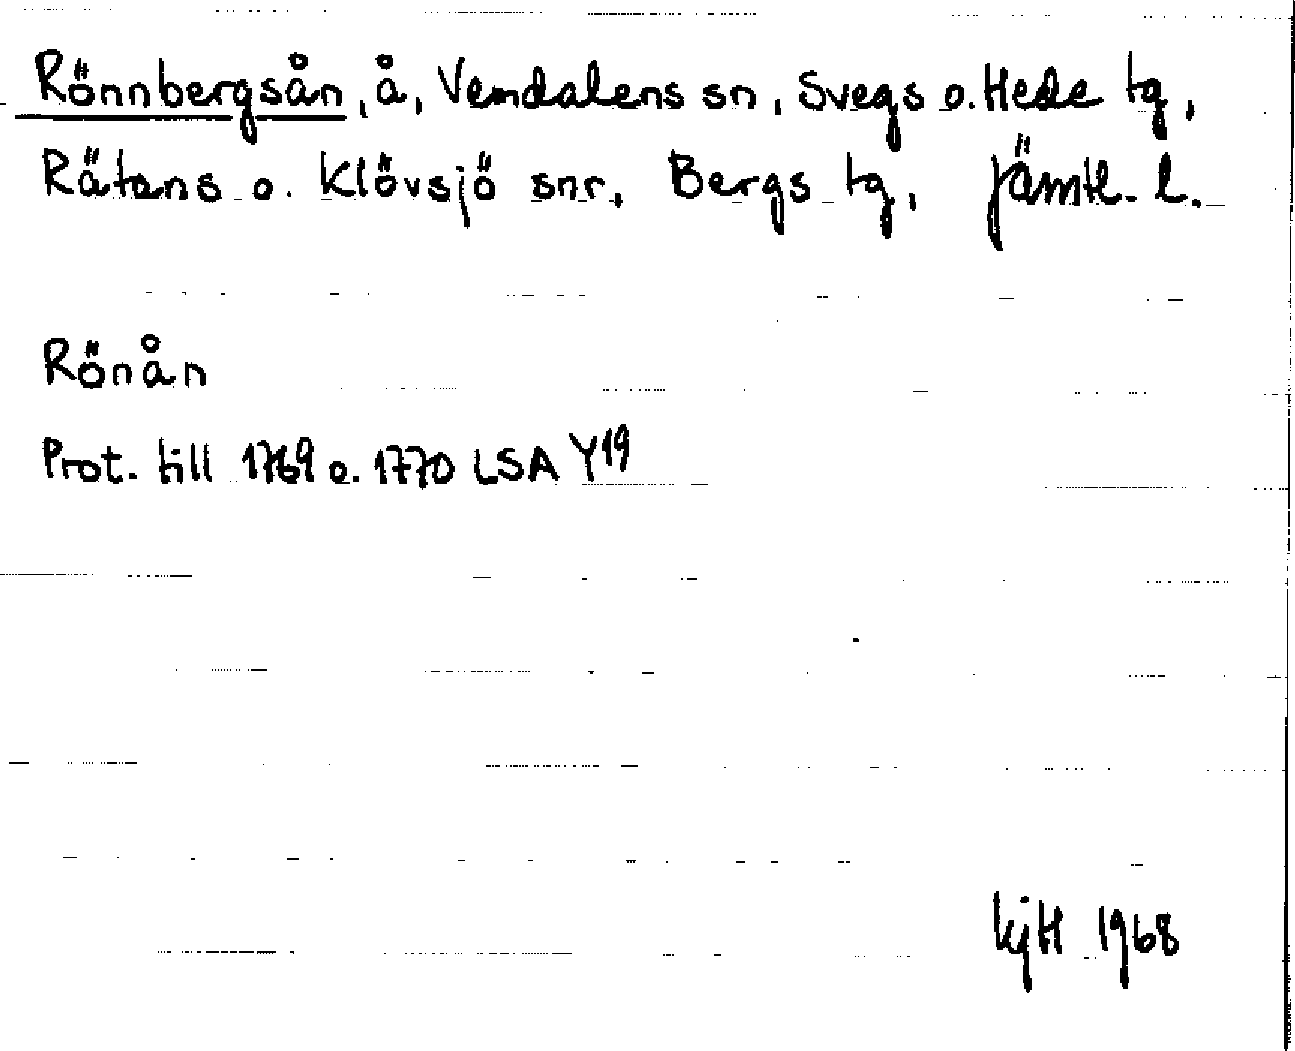 Rönnbergsån, å, Vemdalens sn, Svegs o. Hede tg,
Rätans o. Klövsjö snr, Bergs tg, Jämtl. l.
Rönån
Prot. till 1769 o. 1770 LSA Y19
KjH 1968